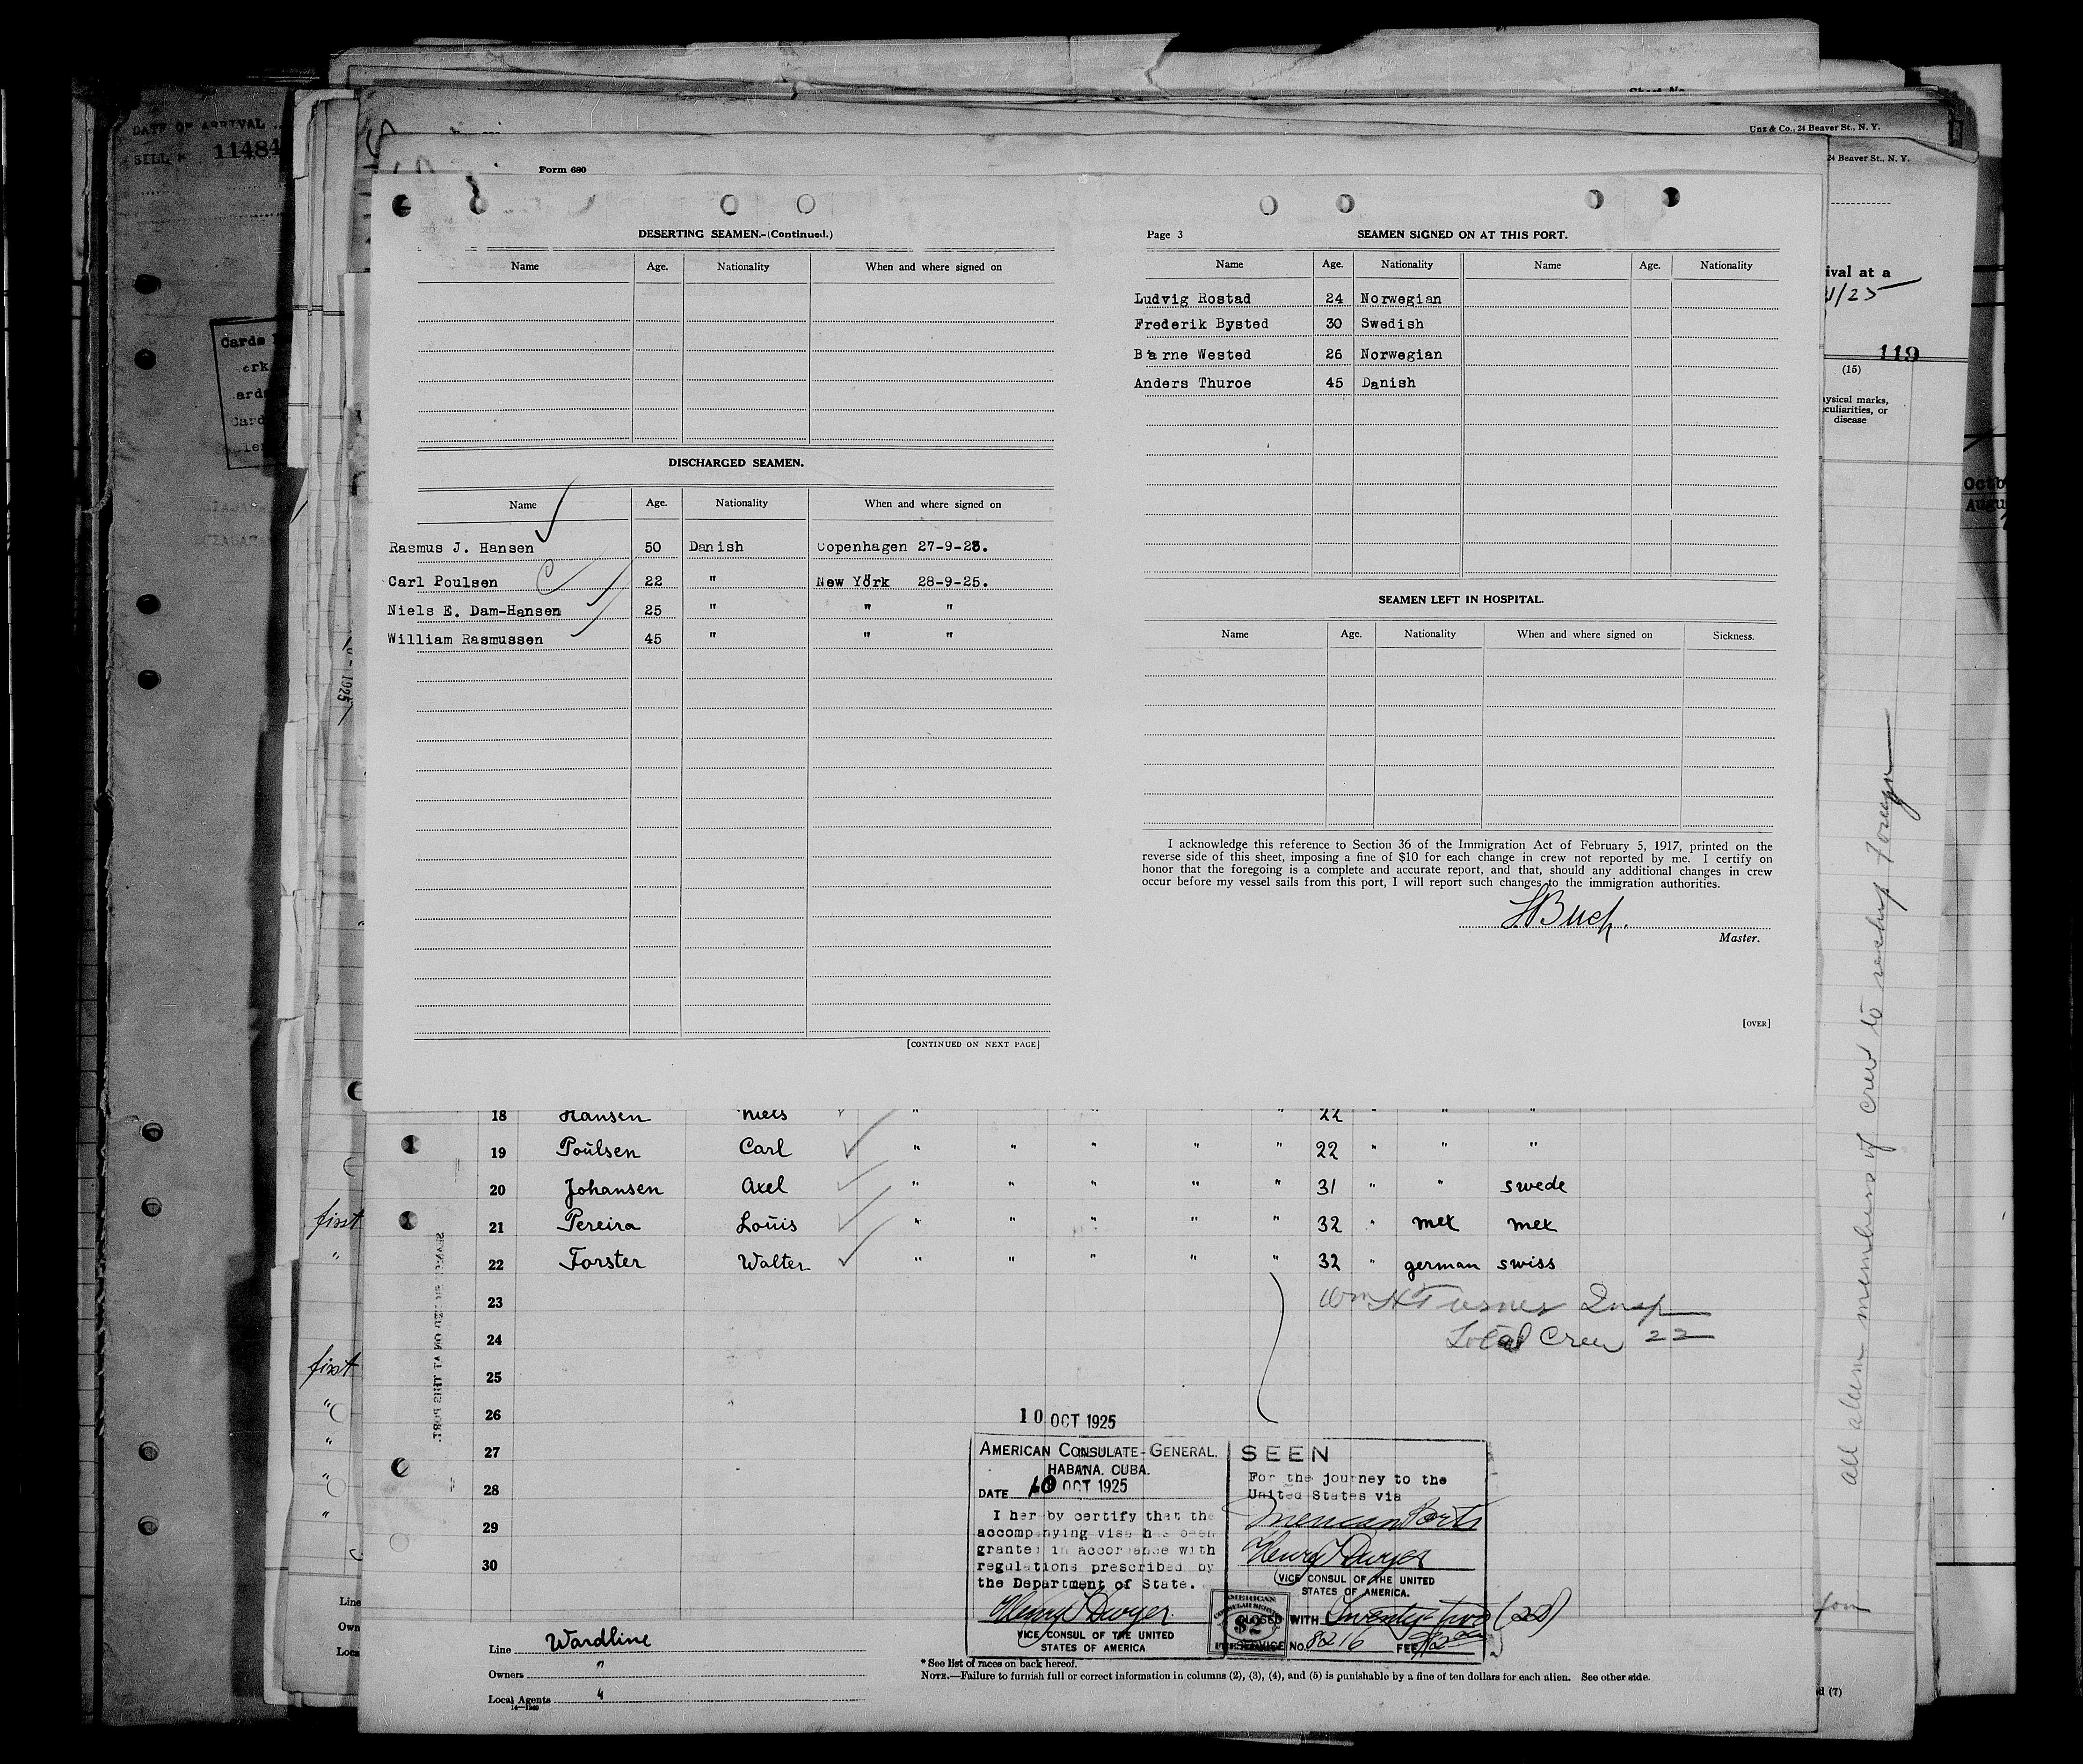 DATE OF ARRIVAL
11484
Unz & Co., 24 Beaver St., N. Y.
24 Beaver St., N. Y.
Form 680
DESERTING SEAMEN.-(Continued.)
Name Age. Nationality When and where signed on
DISCHARGED SEAMEN.
Name Age. Nationality When and where signed on
Rasmus J. Hansen 50 Danish Copenhagen 27-9-23.
Carl Poulsen 22 " New York 28-9-25.
Niels E. Dam-Hansen 25 " " "
William Rasmussen 45 " " "
[CONTINUED ON NEXT PAGE]
Page 3 SEAMEN SIGNED ON AT THIS PORT.
Name Age. Nationality Name Age. Nationality
Ludvig Rostad 24 Norwegian
Frederik Bysted 30 Swedish
Barne Wested 26 Norwegian
Anders Thuroe 45 Danish
SEAMEN LEFT IN HOSPITAL.
Name Age. Nationality When and where signed on Sickness.
I acknowledge this reference to Section 36 of the Immigration Act of February 5, 1917, printed on the
reverse side of this sheet, imposing a fine of $10 for each change in crew not reported by me. I certify on
honor that the foregoing is a complete and accurate report, and that, should any additional changes in crew
occur before my vessel sails from this port, I will report such changes to the immigration authorities.
HBuch.
Master.
[OVER]
ival at a
1/25
119
(15)
ysical marks,
culiarities, or
disease
all alien members of crew to reship foreign
18 Hansen Niels " " " " " 22 " " "
19 Poulsen Carl " " " " " 22 " " "
20 Johansen Axel " " " " " 31 " " swede
21 Pereira Louis " " " " " 32 " mex mex
22 Forster Walter " " " " " 32 " german swiss
23 Wm H Turner Insp
24 Total Crew 22
25
26
27
28
29
30
first
"
first
"
"
"
"
10 OCT 1925
AMERICAN CONSULATE-GENERAL.
HABANA. CUBA.
DATE 10 OCT 1925
I hereby certify that the
accompanying visa has been
granted in accordance with
regulations prescribed by
the Department of State.
Henry Dwyer
VICE CONSUL OF THE UNITED
STATES OF AMERICA
SEEN
For the journey to the
United States via
American Ports
Henry Dwyer
VICE CONSUL OF THE UNITED
STATES OF AMERICA.
CLOSED WITH Twenty-two (22)
SERVICE No. 8216 FEE $2.00
AMERICAN
CONSULAR SERVICE
$2
Line Wardline
Owners "
Local Agents "
14—1940
* See list of races on back hereof.
NOTE.—Failure to furnish full or correct information in columns (2), (3), (4), and (5) is punishable by a fine of ten dollars for each alien. See other side.